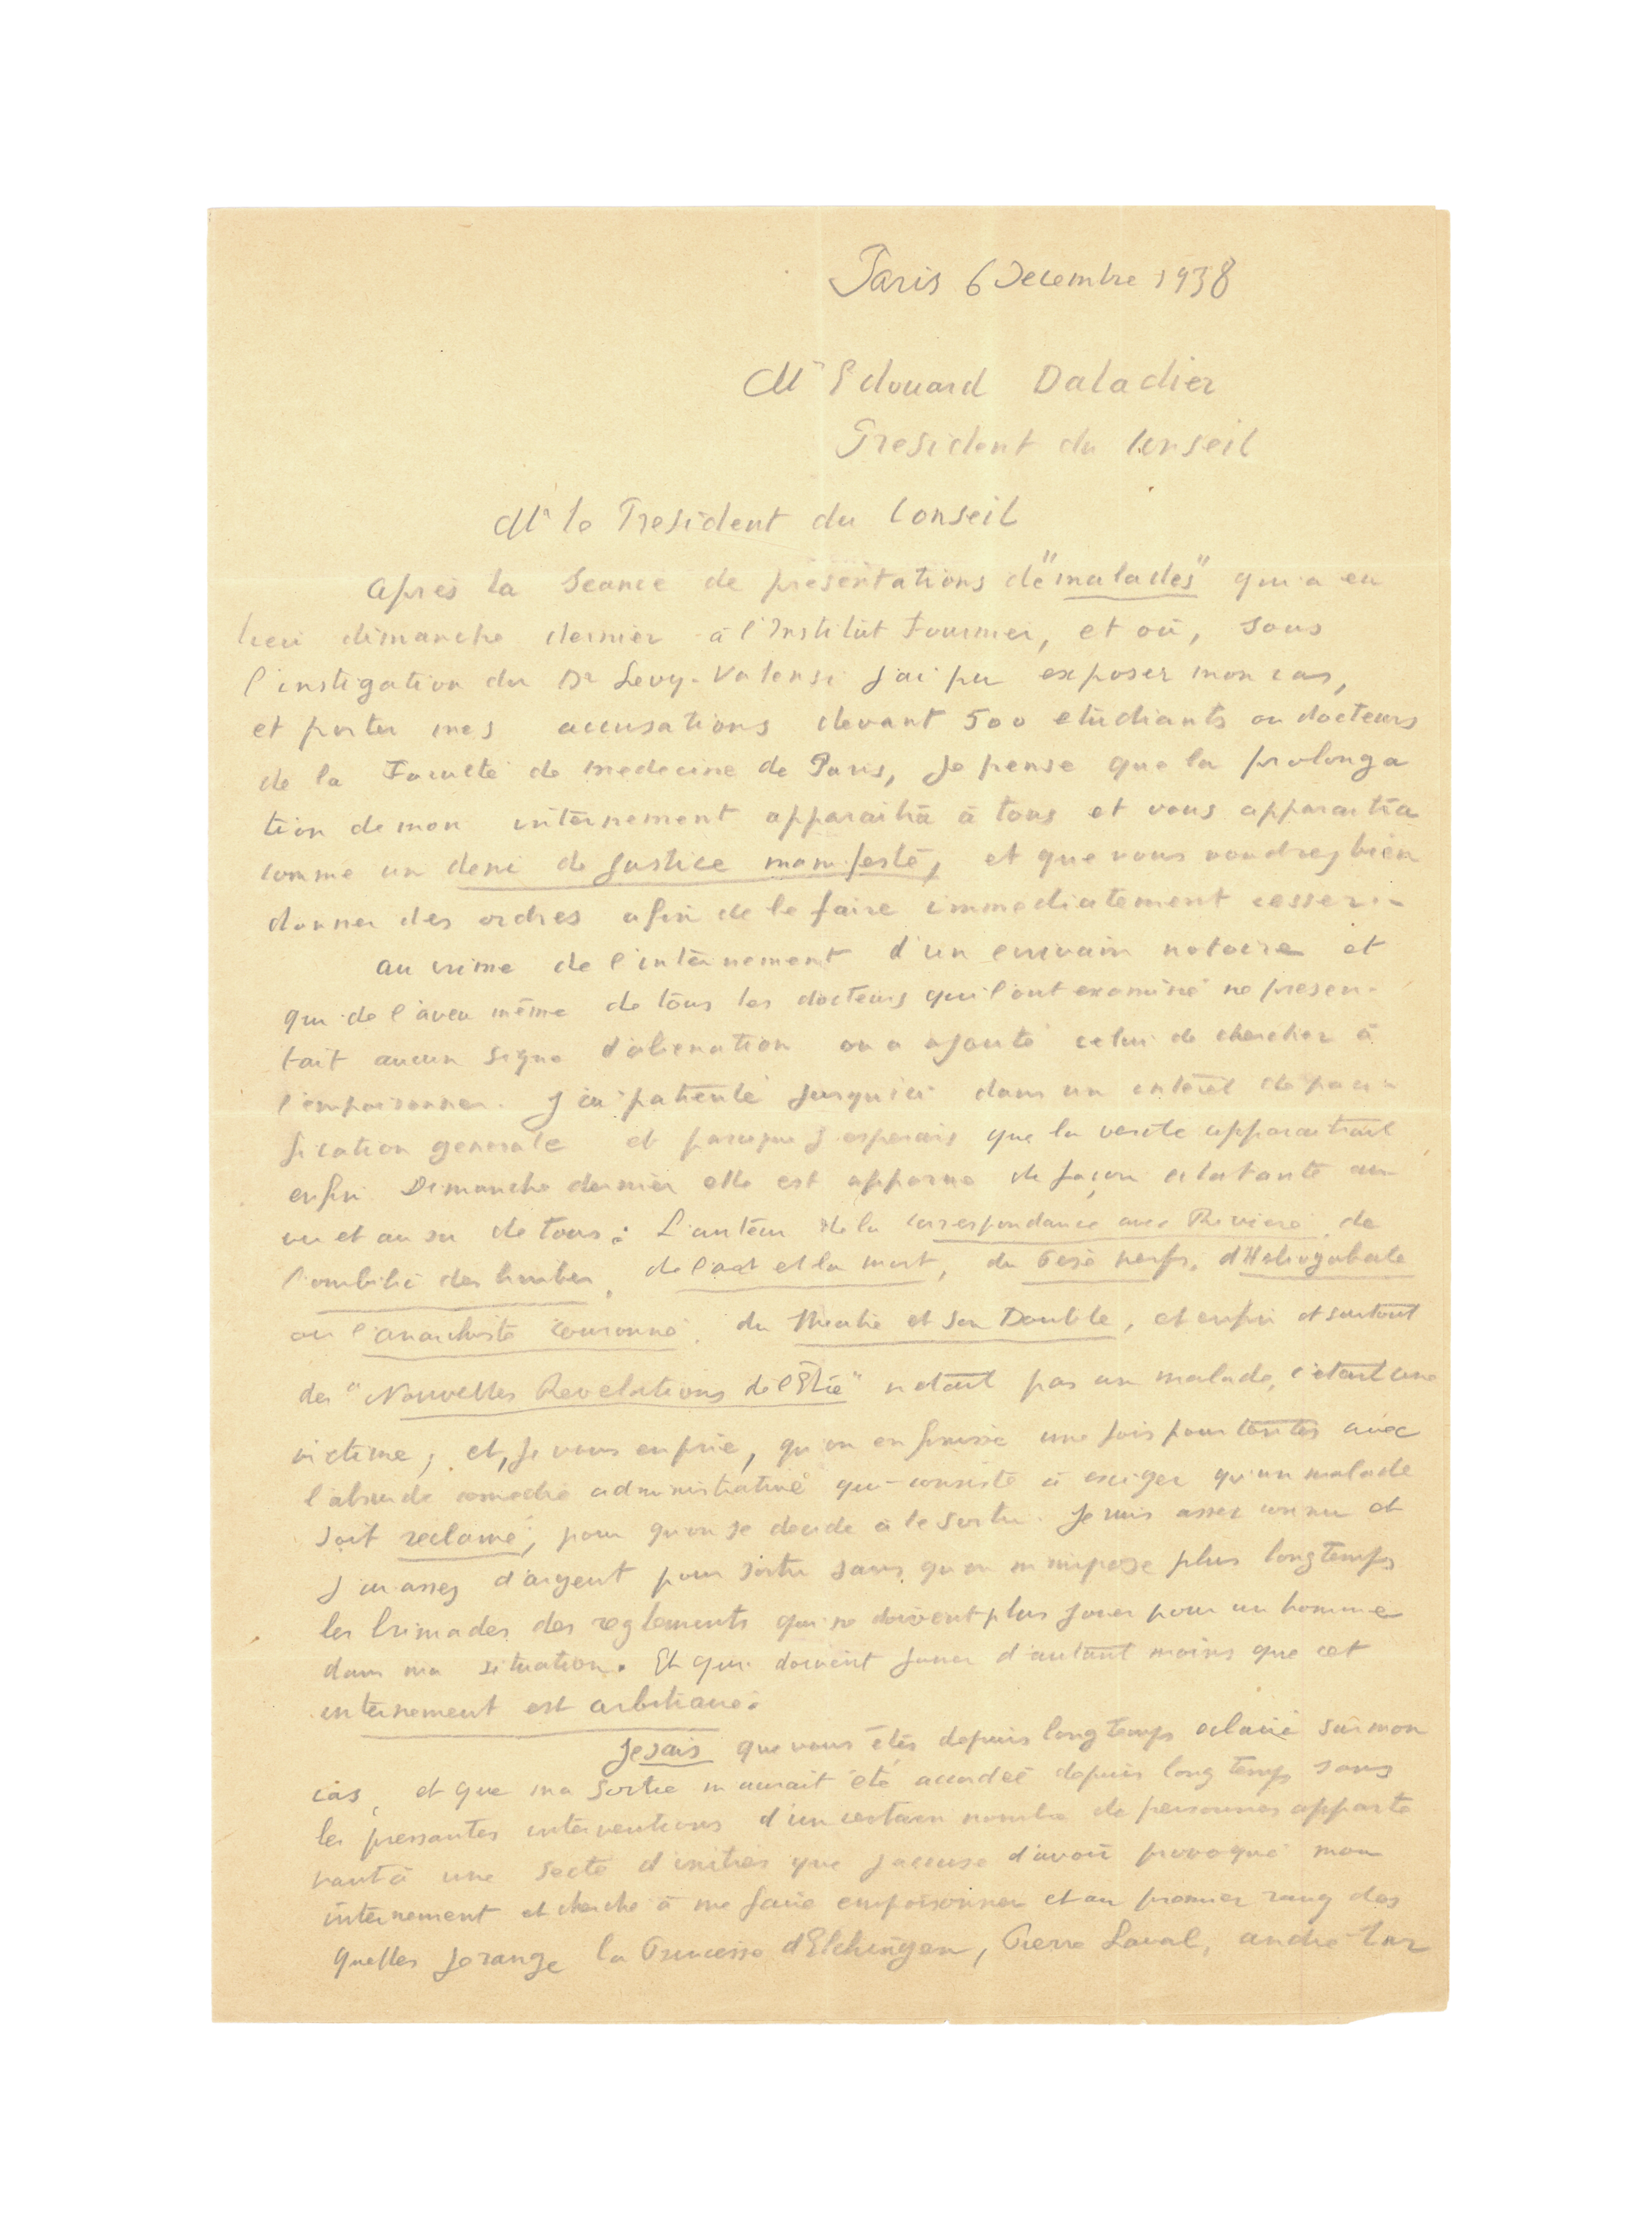 Paris 6 Decembre 1938
Mr Edouard Daladier
President du Conseil
Mr le President du Conseil
Après la Seance de présentations de "malades" qui a eu
lieu dimanche dernier à l'Institut Fournier, et où, sous
l'instigation du Dr Levy-Valensi j'ai pu exposer mon cas,
et porter mes accusations devant 500 etudiants ou docteurs
de la Faculté de medecine de Paris, je pense que la prolonga
tion de mon internement apparaitra à tous et vous apparaitra
comme un deni de Justice manifeste, et que vous voudrez bien
donner des ordres afin de le faire immediatement cesser. -
Au crime de l'internement d'un ecrivain notoire et
qui de l'aveu même de tous les docteurs qui l'ont examiné ne presen-
tait aucun signe d'alienation on a ajouté celui de chercher à
l'empoisonner. J'ai patienté jusqu'ici dans un intérêt de paci-
fication generale et parceque j'esperais que la verite apparaitrait
enfin. Dimanche dernier elle est apparue de façon eclatante au
vu et au su de tous : L'auteur de la Correspondance avec Riviere, de
l'ombilic des limbes, de l'art et la mort, du Pese nerfs, d'Heliogabale
ou l'anarchiste couronné, du Theatre et son Double, et enfin et surtout
des "Nouvelles Revelations de l'Etre" n'etait pas un malade, c'etait une
victime ; et, je vous en prie, qu'on en finisse une fois pour toutes avec
l'absurde comedie administrative qui consiste à exiger qu'un malade
soit reclamé, pour qu'on se decide à le sortir. Je suis assez connu et
j'ai assez d'argent pour sortir sans qu'on m'impose plus longtemps
les brimades des reglements qui ne doivent plus jouer pour un homme
dans ma situation. Et qui doivent jouer d'autant moins que cet
internement est arbitraire.
Je sais que vous êtes depuis longtemps eclairé sur mon
cas, et que ma sortie m'aurait été accordée depuis longtemps sans
les pressantes interventions d'un certain nombre de personnes apparte
nant à une secte d'inities que j'accuse d'avoir provoqué mon
internement et cherché à me faire empoisonner et au premier rang des
quelles je range la Princesse d'Elchingen, Pierre Laval, andre Tar